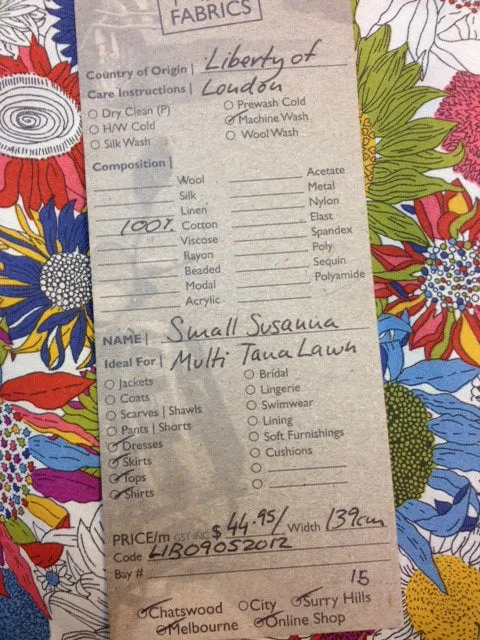 FABRICS
Country of Origin | Liberty of
Care Instructions | London
Dry Clean (P) Prewash Cold
H/W Cold Machine Wash
Silk Wash Wool Wash
Composition |
Wool Acetate
Silk Metal
Linen Nylon
100% Cotton Elast
Viscose Spandex
Rayon Poly
Beaded Sequin
Modal Polyamide
Acrylic
NAME | Small Susanna
Ideal For | Multi Tana Lawn
Jackets Bridal
Coats Lingerie
Scarves | Shawls Swimwear
Pants | Shorts Lining
Dresses Soft Furnishings
Skirts Cushions
Tops
Shirts
PRICE/m GST INC $ 44.95/ Width 139cm
Code LIB09052012
Bay #
15
Chatswood City Surry Hills
Melbourne Online Shop